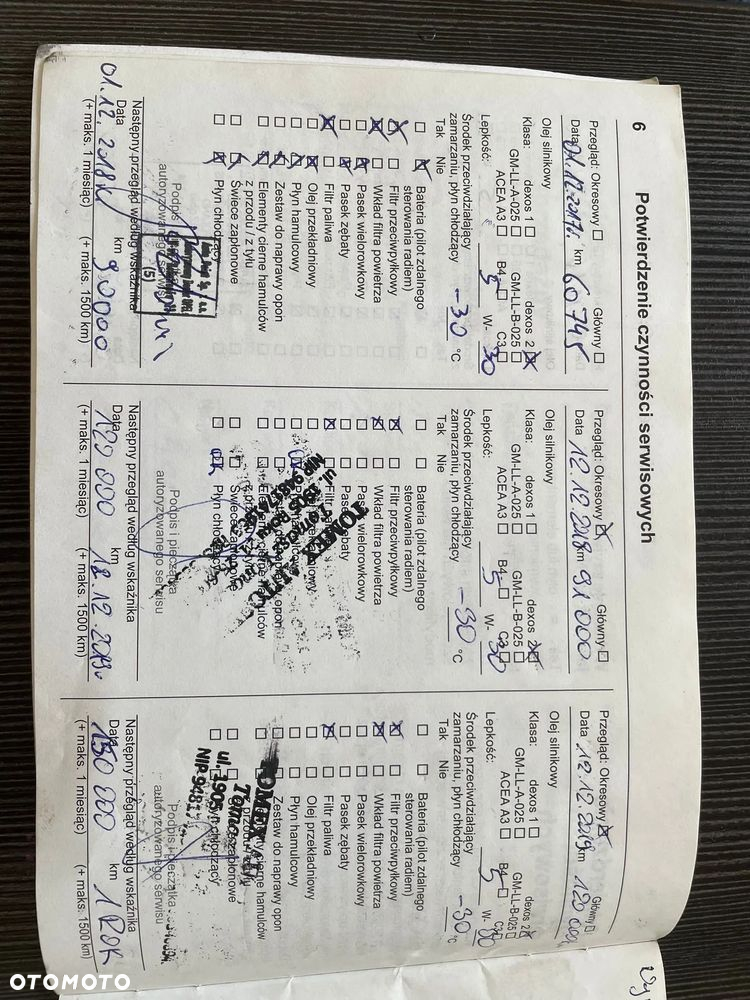 6
Potwierdzenie czynności serwisowych
Przegląd: Okresowy Główny
Data 01.12.2017r. km 60745
Olej silnikowy
Klasa: dexos 1 dexos 2
GM-LL-A-025 GM-LL-B-025
ACEA A3 B4 C3
Lepkość: 5 W- 30
Środek przeciwdziałający
zamarzaniu, płyn chłodzący -30 °C
Tak Nie
Bateria (pilot zdalnego
sterowania radiem)
Filtr przeciwpyłkowy
Wkład filtra powietrza
Pasek wielorowkowy
Pasek zębaty
Filtr paliwa
Olej przekładniowy
Płyn hamulcowy
Zestaw do naprawy opon
Elementy cierne hamulców
z przodu / z tyłu
Świece zapłonowe
Płyn chłodzący
Podpis
autoryzowanego
(5)
Następny przegląd według wskaźnika
01.12.2018r. 90000
Data km
(+ maks. 1 miesiąc) (+ maks. 1500 km)
Przegląd: Okresowy Główny
Data 12.12.2018r km 91 000
Olej silnikowy
Klasa: dexos 1 dexos 2
GM-LL-A-025 GM-LL-B-025
ACEA A3 B4 C3
Lepkość: 5 W- 30
Środek przeciwdziałający
zamarzaniu, płyn chłodzący -30 °C
Tak Nie
Bateria (pilot zdalnego
sterowania radiem)
Filtr przeciwpyłkowy
Wkład filtra powietrza
Pasek wielorowkowy
Pasek zębaty
TOMEX
ul. 1905 Roku
Płyn chłodzący
Podpis i pieczątka
autoryzowanego serwisu
Następny przegląd według wskaźnika
120 000 12.12.2019r
Data km
(+ maks. 1 miesiąc) (+ maks. 1500 km)
Przegląd: Okresowy Główny
Data 12.12.2019 km 120 000
Olej silnikowy
Klasa: dexos 1 dexos 2
GM-LL-A-025 GM-LL-B-025
ACEA A3 B4 C3
Lepkość: 5 W- 30
Środek przeciwdziałający
zamarzaniu, płyn chłodzący -30 °C
Tak Nie
Bateria (pilot zdalnego
sterowania radiem)
Filtr przeciwpyłkowy
Wkład filtra powietrza
Pasek wielorowkowy
Pasek zębaty
Filtr paliwa
Olej przekładniowy
Płyn hamulcowy
Zestaw do naprawy opon
hamulców
ul. 1905
chłodzący
Podpis i pieczątka
autoryzowanego serwisu
Następny przegląd według wskaźnika
150 000 1 ROK
Data km
(+ maks. 1 miesiąc) (+ maks. 1500 km)
OTOMOTO